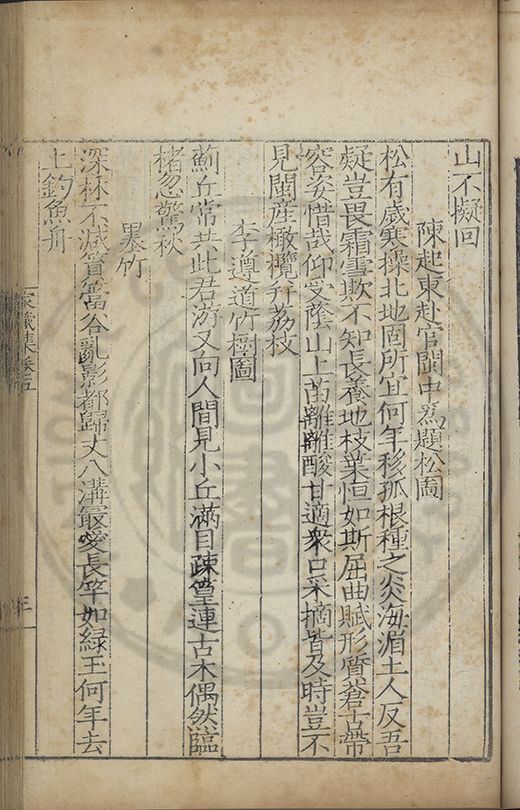 山不擬回
陳起東赴官閩中為題松圖
松有歲寒操北地固所宜何年移孤根種之炎海湄土人反吾
疑豈畏霜雪欺不知長養地枝葉恒如斯屈曲賦形質蒼古帶
容姿惜哉仰受蔭山上苗離離酸甘適衆口采摘皆及時豈不
見閩産橄欖幷荔枝
李遵道竹樹圖
薊丘常共此君游又向人間見小丘滿目疎篁連古木偶然臨
楮忽驚秋
墨竹
深林不減篔簹谷亂影都歸丈八溝最愛長竿如綠玉何年去
上釣魚舟
家藏集卷五